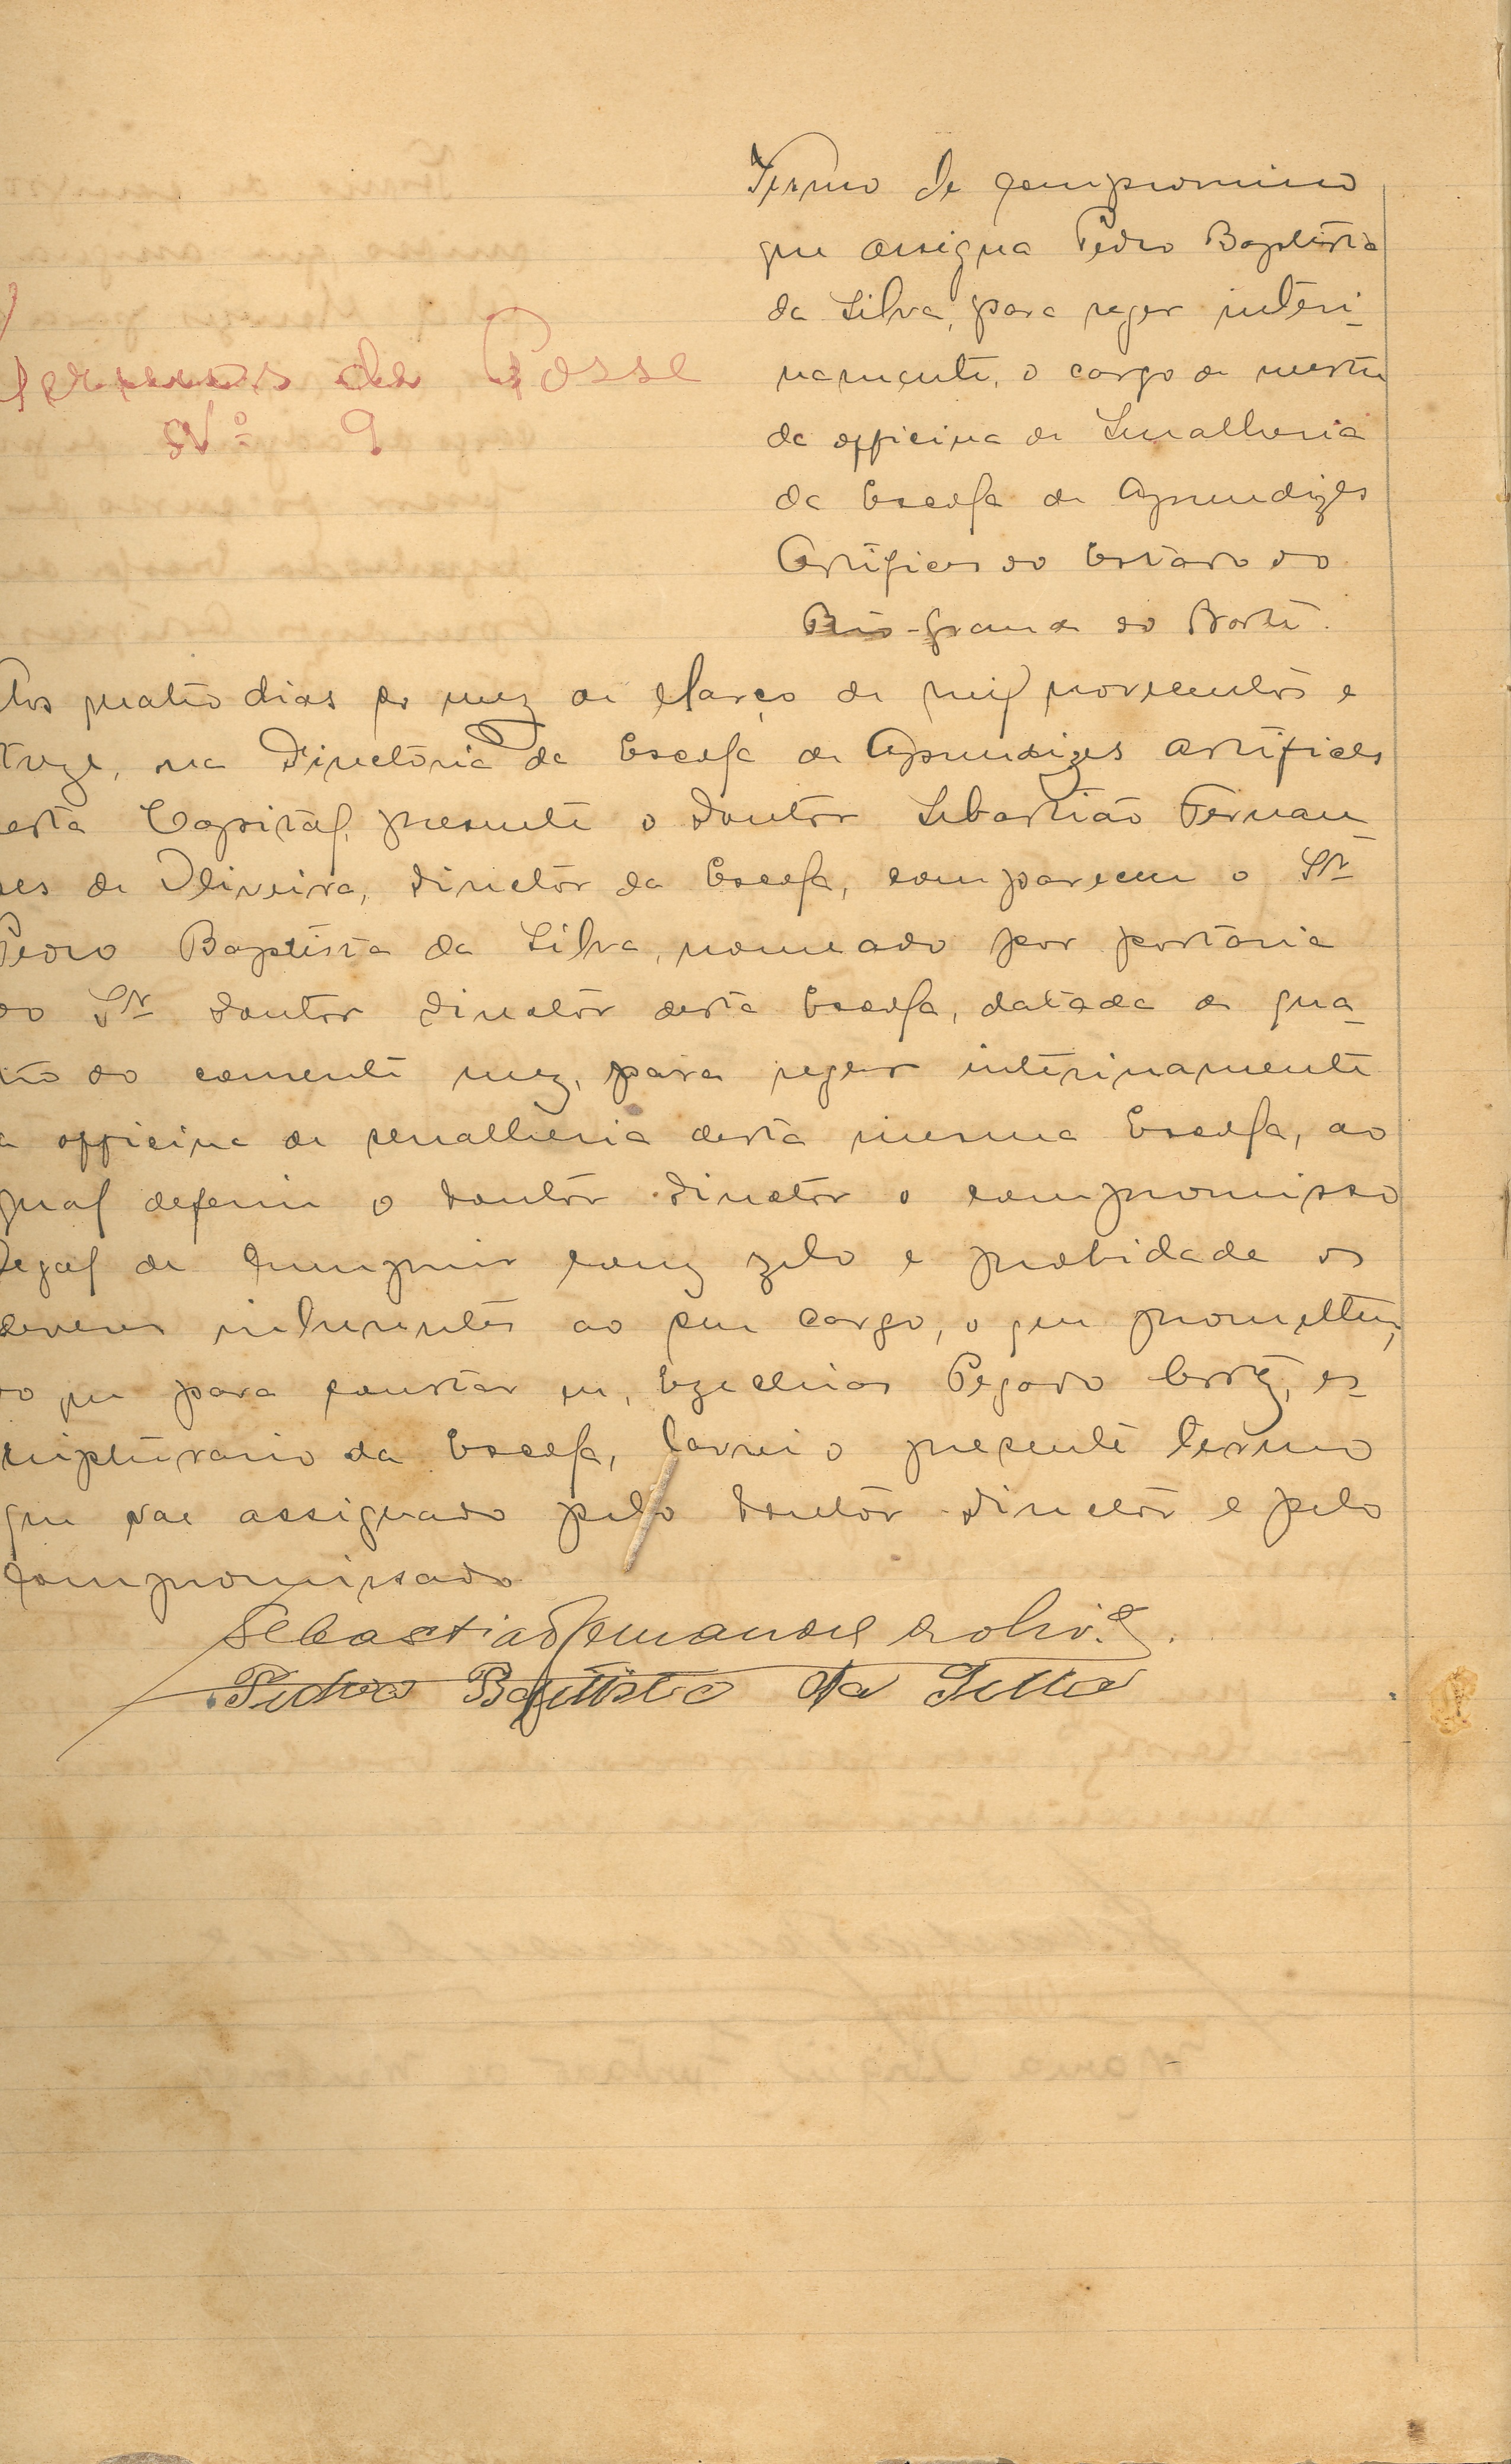 Termo de compromisso
que assigna Pedro Baptista
da Silva, para reger interi-
namente, o cargo de mestre
da officina de Serralheria
da Escola de Aprendizes
Artifices do Estado do
Rio-Grande do Norte.
Termos de Posse
Nº 9
Aos quatro dias do mez de Março de mil novecentos e
treze, na Directoria da Escola de Aprendizes Artifices
desta Capital, presente o Doutor Sebastião Fernan-
des de Oliveira, Director da Escola, compareceu o Snr
Pedro Baptista da Silva, nomeado por portaria
do Snr Doutor Director desta Escola, datada de qua-
tro do corrente mez, para reger interinamente
a officina de serralheria desta mesma Escola, ao
qual deferiu o Doutor Director o compromisso
legal de cumprir com zelo e probidade os
deveres inherentes ao seu cargo, o que prometteu,
do que para constar eu, Ezechias Pegado Cortez, es-
cripturario da Escola, lavrei o presente termo
que vae assignado pelo Doutor Director e pelo
compromissado
Sebastião Fernandes de Olivª.
Pedro Baptista da Silva